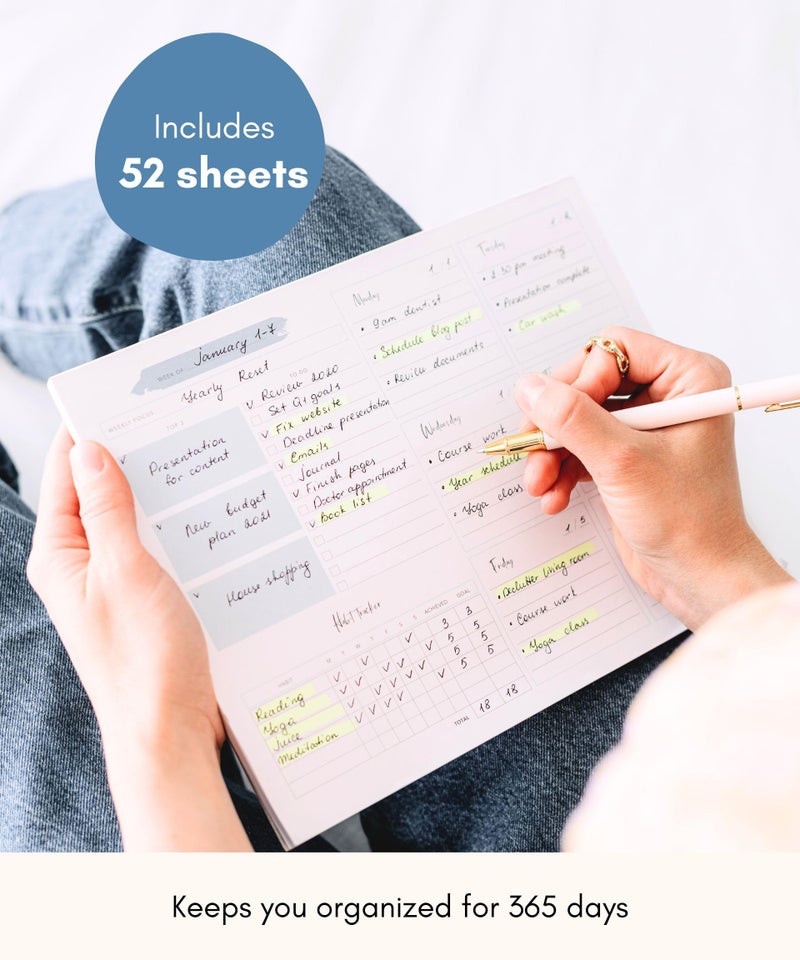 Includes
52 sheets
WEEK OF January 1-7
WEEKLY FOCUS: Yearly Reset
TOP 3
Presentation
for content
New budget
plan 2021
House shopping
TO DO
Review 2020
Set Q1 goals
Fix website
Deadline presentation
Emails
Journal
Finish pages
Doctor appointment
Book list
Monday 1/1
• 9am dentist
• Schedule blog post
• Review documents
Tuesday
• 2 30 pm meeting
• Presentation complete
• Car wash
Wednesday
• Course work
• Year schedule
• Yoga class
Friday 1/5
• Declutter living room
• Course work
• Yoga class
Habit Tracker
HABIT M T W T F S S ACHIEVED GOAL
Reading 3 3
Yoga 5 5
Juice 5 5
Meditation 5 5
TOTAL 18 18
Keeps you organized for 365 days